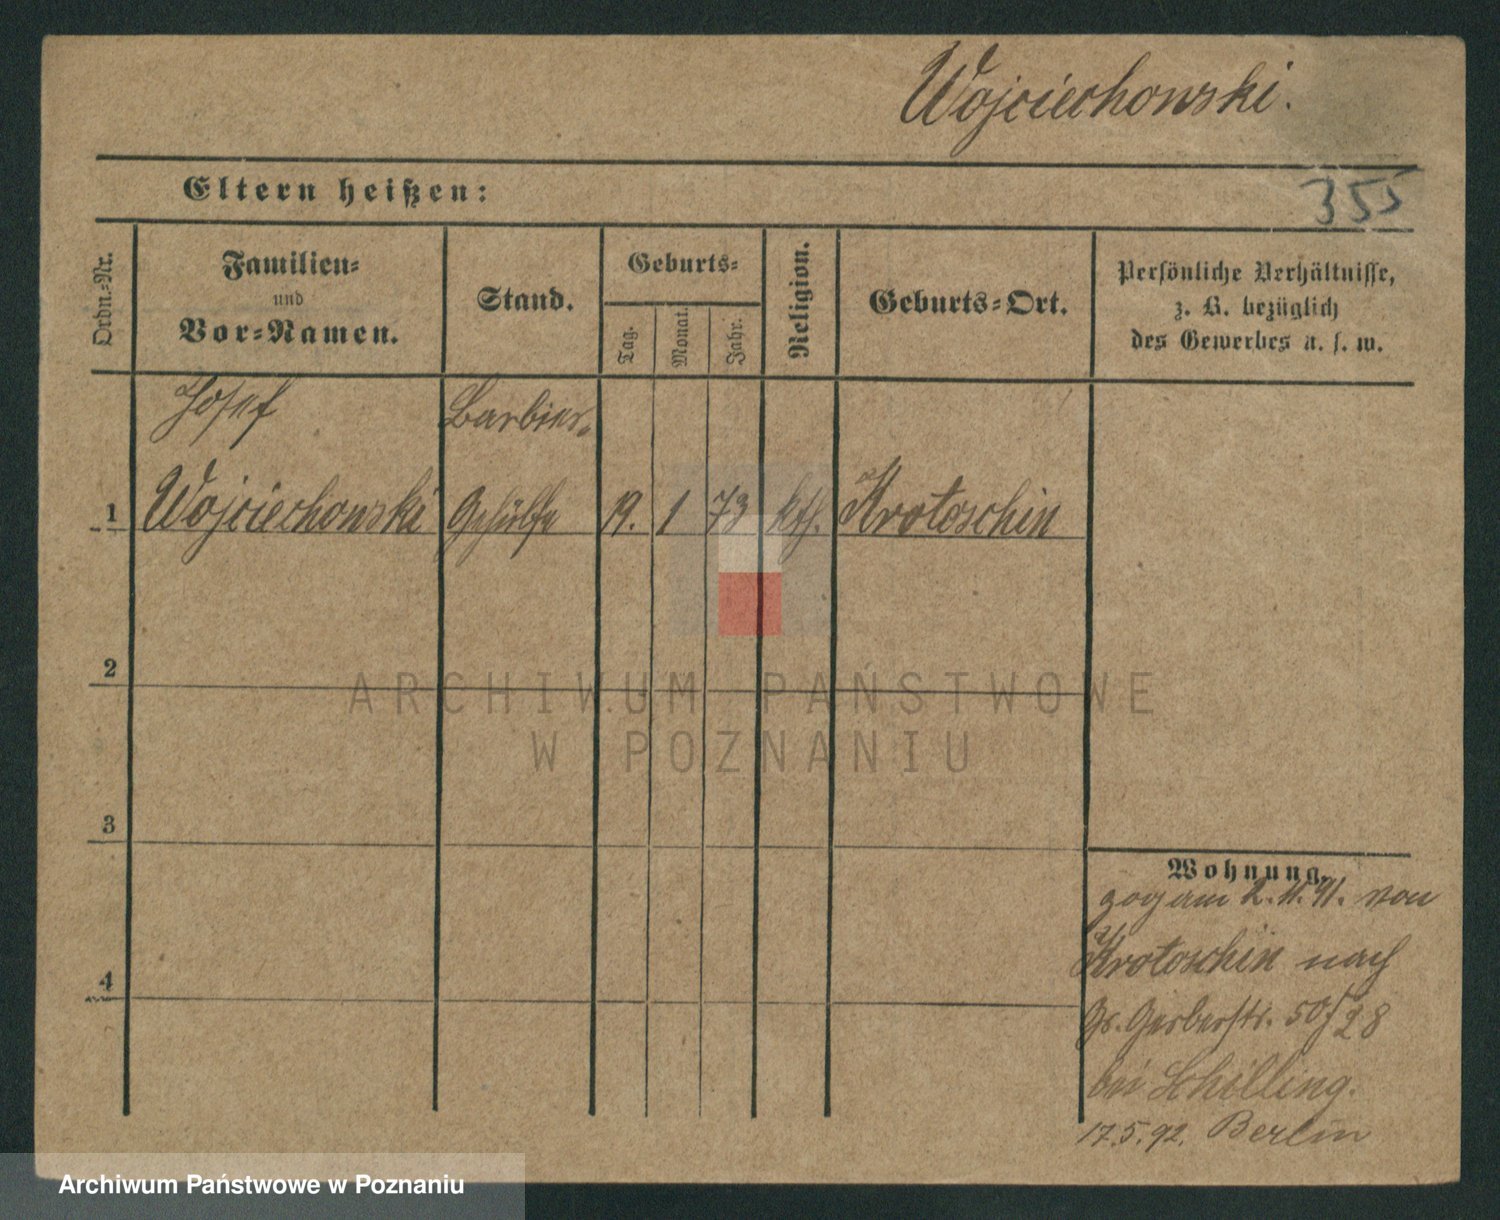 Wojciechowski.
Eltern heißen:
355
Ordn.-Nr.
Familien-
und
Vor-Namen.
Stand.
Geburts-
Tag.
Monat.
Jahr.
Religion.
Geburts-Ort.
Persönliche Verhältnisse,
z. B. bezüglich
des Gewerbes u. s. w.
Josef
Barbier-
1 Wojciechowski Gehülfe 19. 1 73 kth. Krotoschin
2
ARCHIWUM PAŃSTWOWE
W POZNANIU
3
Wohnung.
zog am 2.11.91. von
Krotoschin nach
4
Gr. Gerberstr. 50/28
bei Schilling.
17.5.92. Berlin
Archiwum Państwowe w Poznaniu